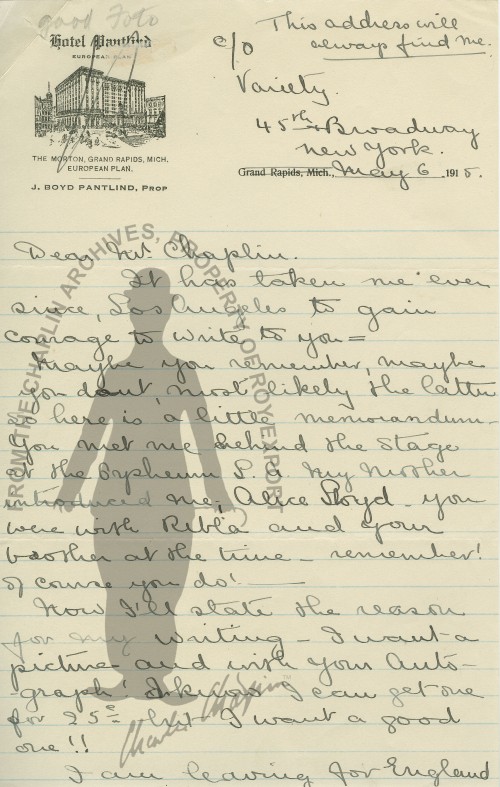 good Foto
This address will
always find me.
c/o
Hotel Pantlind
EUROPEAN PLAN
Variety.
45th Broadway
New York.
THE MORTON, GRAND RAPIDS, MICH.
EUROPEAN PLAN.
J. BOYD PANTLIND, PROP
Grand Rapids, Mich., May 6 1915.
Dear Mr. Chaplin.
It has taken me ever
since, Los Angeles to gain
courage to write to you=
Maybe you remember, maybe
you dont, most likely the latter
so here is a little memorandum-
You met me behind the stage
at the Orpheum L.A. My Mother
introduced me, Alice Lloyd - you
were with Ribla and your
brother at the time - remember!
Of course you do! -
Now I'll state the reason
for my writing - I want a
picture and with your Auto-
-graph! I know I can get one
for 25c - but I want a good
one!!
I am leaving for England
FROM THE CHAPLIN ARCHIVES, PROPERTY OF ROY EXPORT
Charlie Chaplin